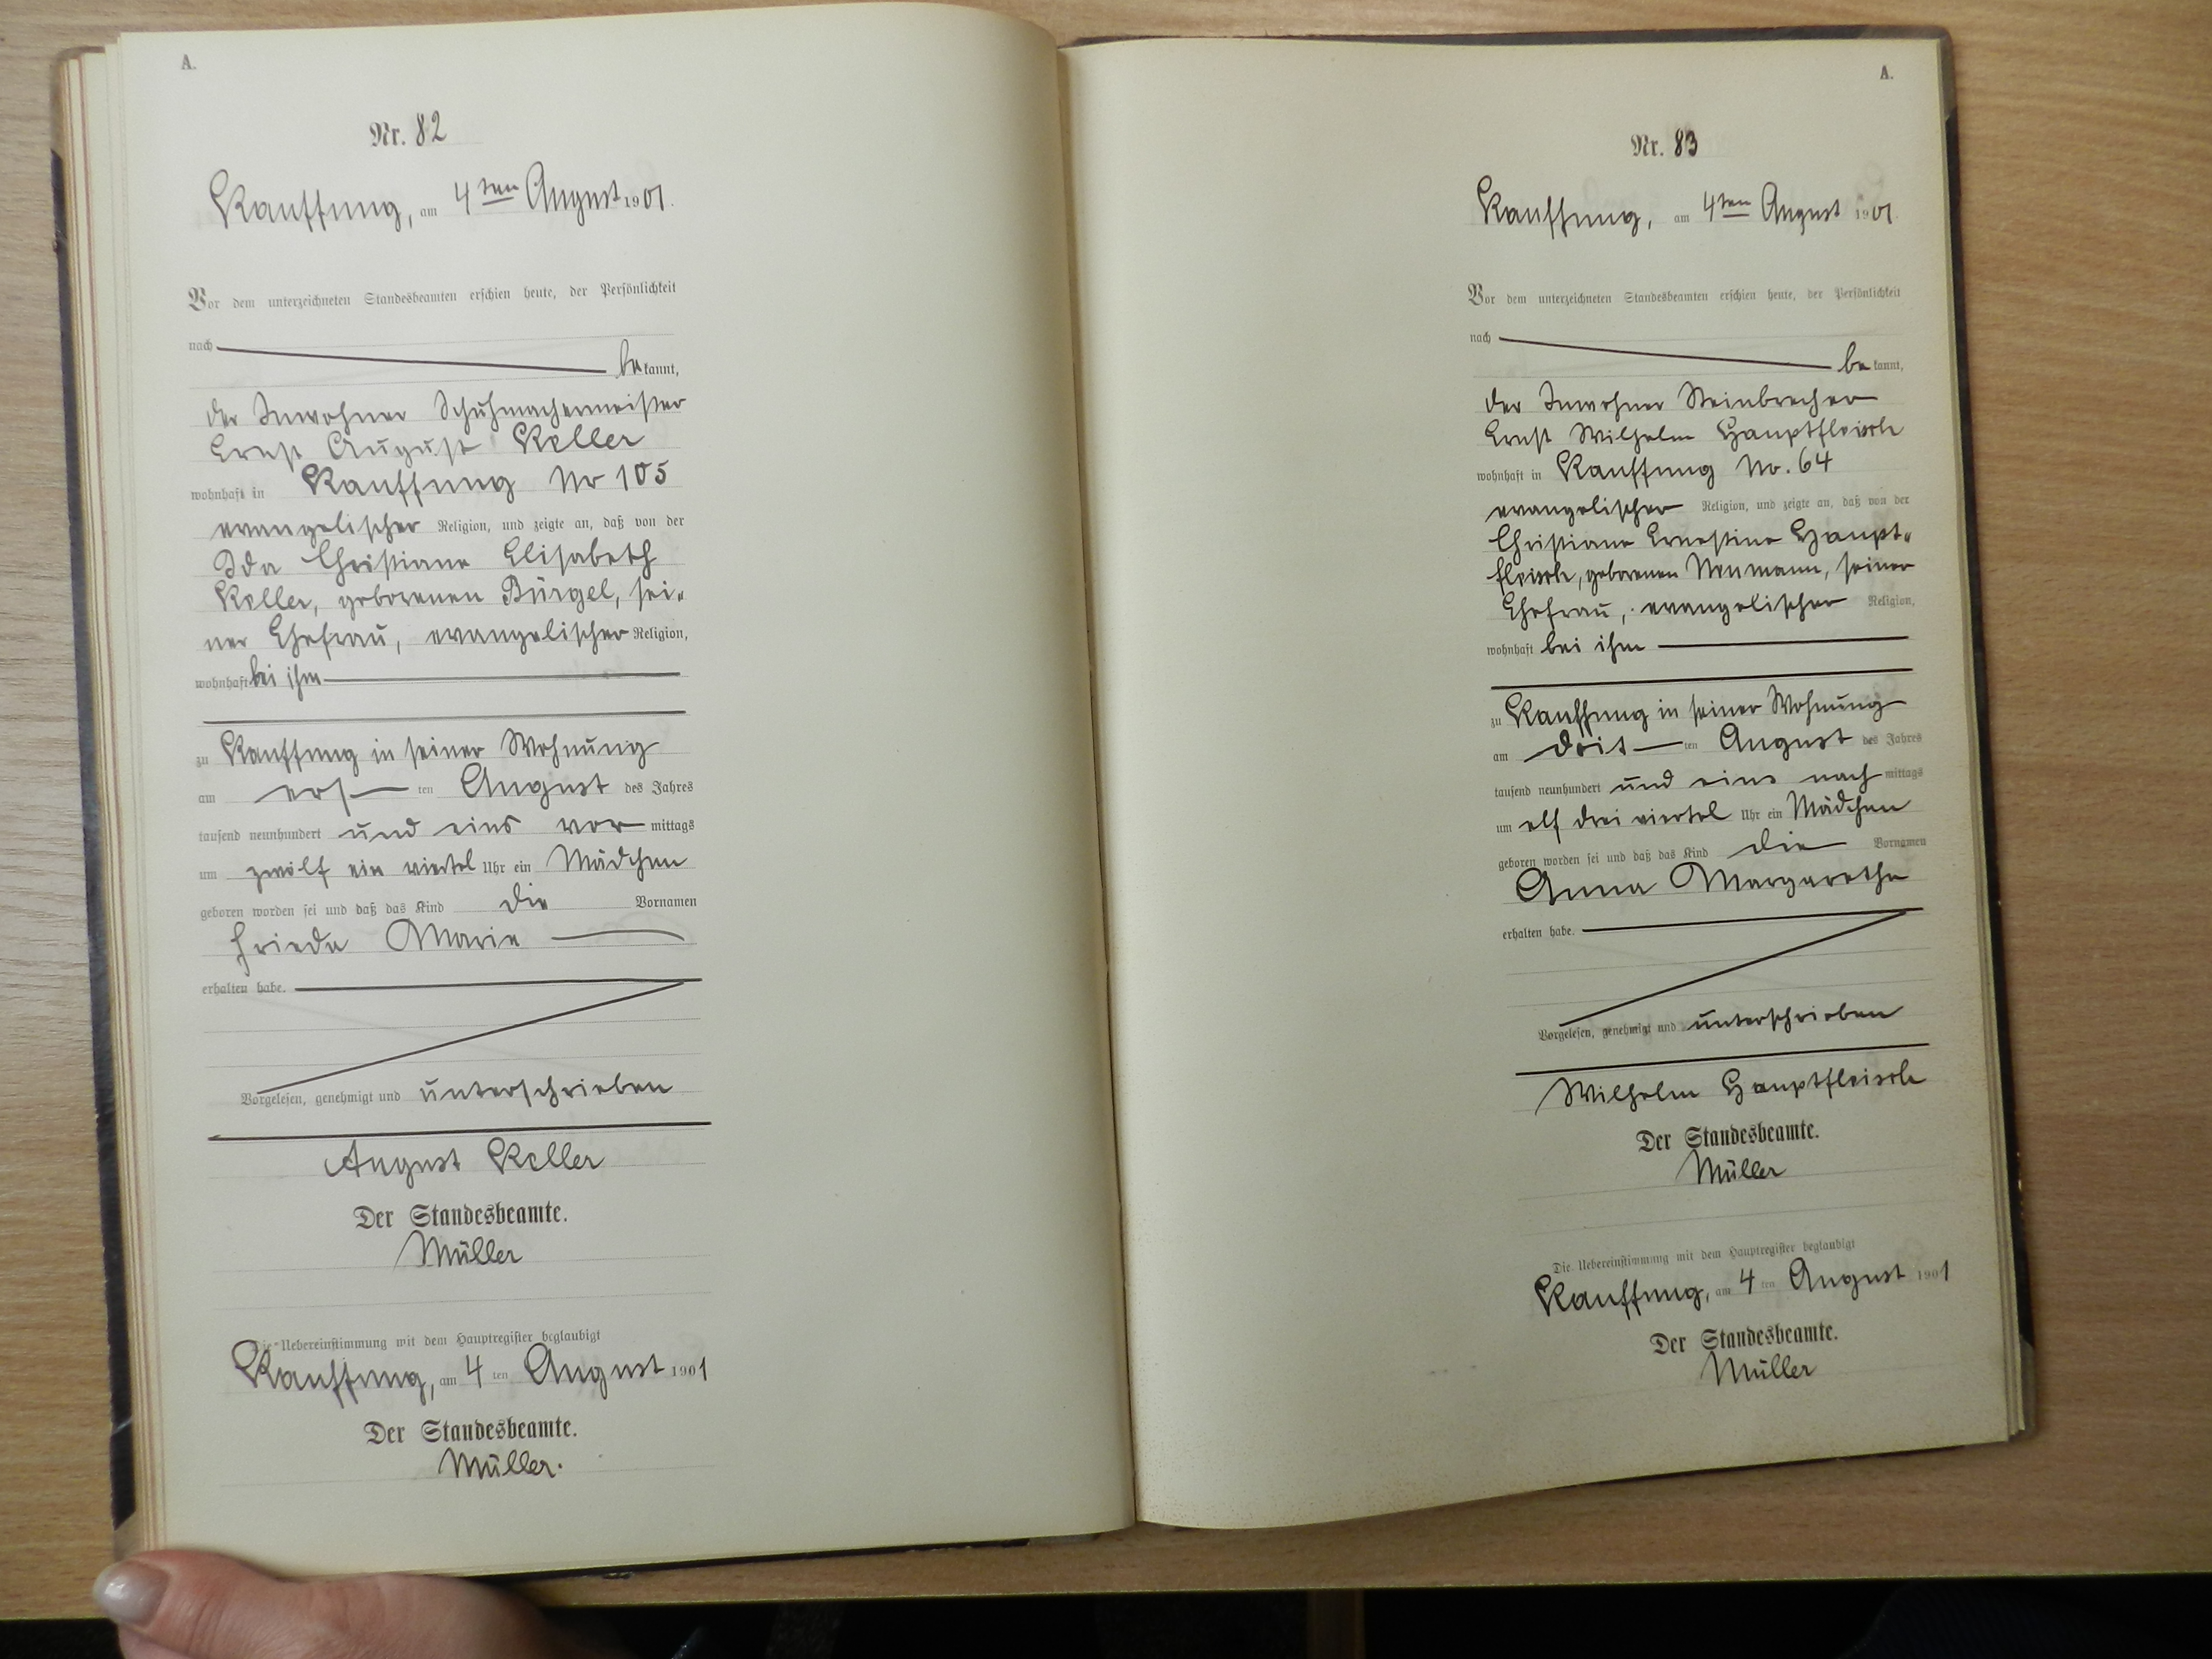 A.
Nr. 82
Kauffung, am 4ten August 1901.
Vor dem unterzeichneten Standesbeamten erschien heute, der Persönlichkeit
nach
bekannt,
der Inwohner Schuhmachermeister
Ernst August Keller
wohnhaft in Kauffung Nr 105
evangelischer Religion, und zeigte an, daß von der
Ida Christiane Elisabeth
Keller, geborenen Bürgel, sei-
ner Ehefrau, evangelischer Religion,
wohnhaft bei ihm
zu Kauffung in seiner Wohnung
am ersten August des Jahres
tausend neunhundert und eins vormittags
um zwölf ein viertel Uhr ein Mädchen
geboren worden sei und daß das Kind die Vornamen
Frieda Marie
erhalten habe.
Vorgelesen, genehmigt und unterschrieben
August Keller
Der Standesbeamte.
Müller
Die Uebereinstimmung mit dem Hauptregister beglaubigt
Kauffung, am 4ten August 1901
Der Standesbeamte.
Müller.
A.
Nr. 83
Kauffung, am 4ten August 1901
Vor dem unterzeichneten Standesbeamten erschien heute, der Persönlichkeit
nach
bekannt,
der Inwohner Steinbrecher
Ernst Wilhelm Hauptfleisch
wohnhaft in Kauffung No. 64
evangelischer Religion, und zeigte an, daß von der
Christiane Ernestine Haupt-
fleisch, geborenen Neumann, seiner
Ehefrau, evangelischer Religion,
wohnhaft bei ihm
zu Kauffung in seiner Wohnung
am dritten August des Jahres
tausend neunhundert und eins nachmittags
um elf drei viertel Uhr ein Mädchen
geboren worden sei und daß das Kind die Vornamen
Anna Margarethe
erhalten habe.
Vorgelesen, genehmigt und unterschrieben
Wilhelm Hauptfleisch
Der Standesbeamte.
Müller
Die Uebereinstimmung mit dem Hauptregister beglaubigt
Kauffung, am 4ten August 1901
Der Standesbeamte.
Müller